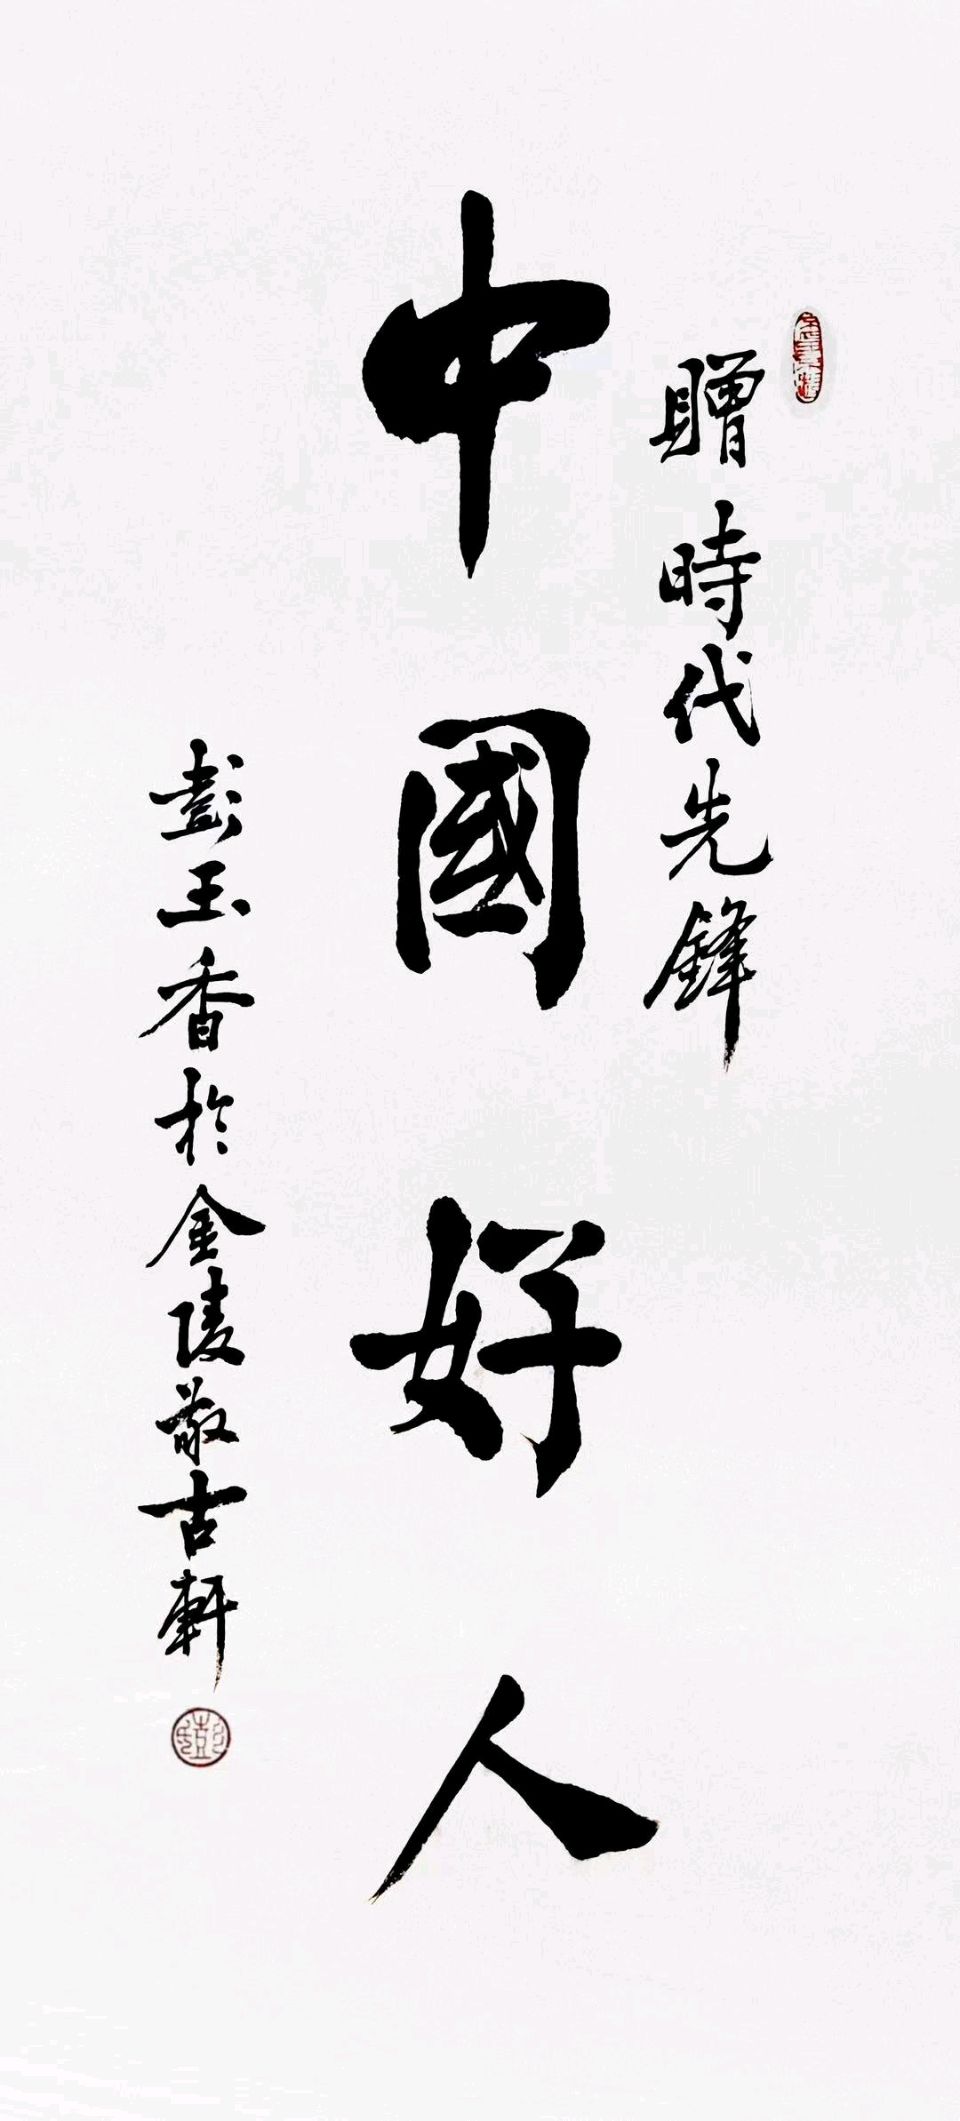 贈時代先鋒
中國好人
彭玉香於金陵敬古軒